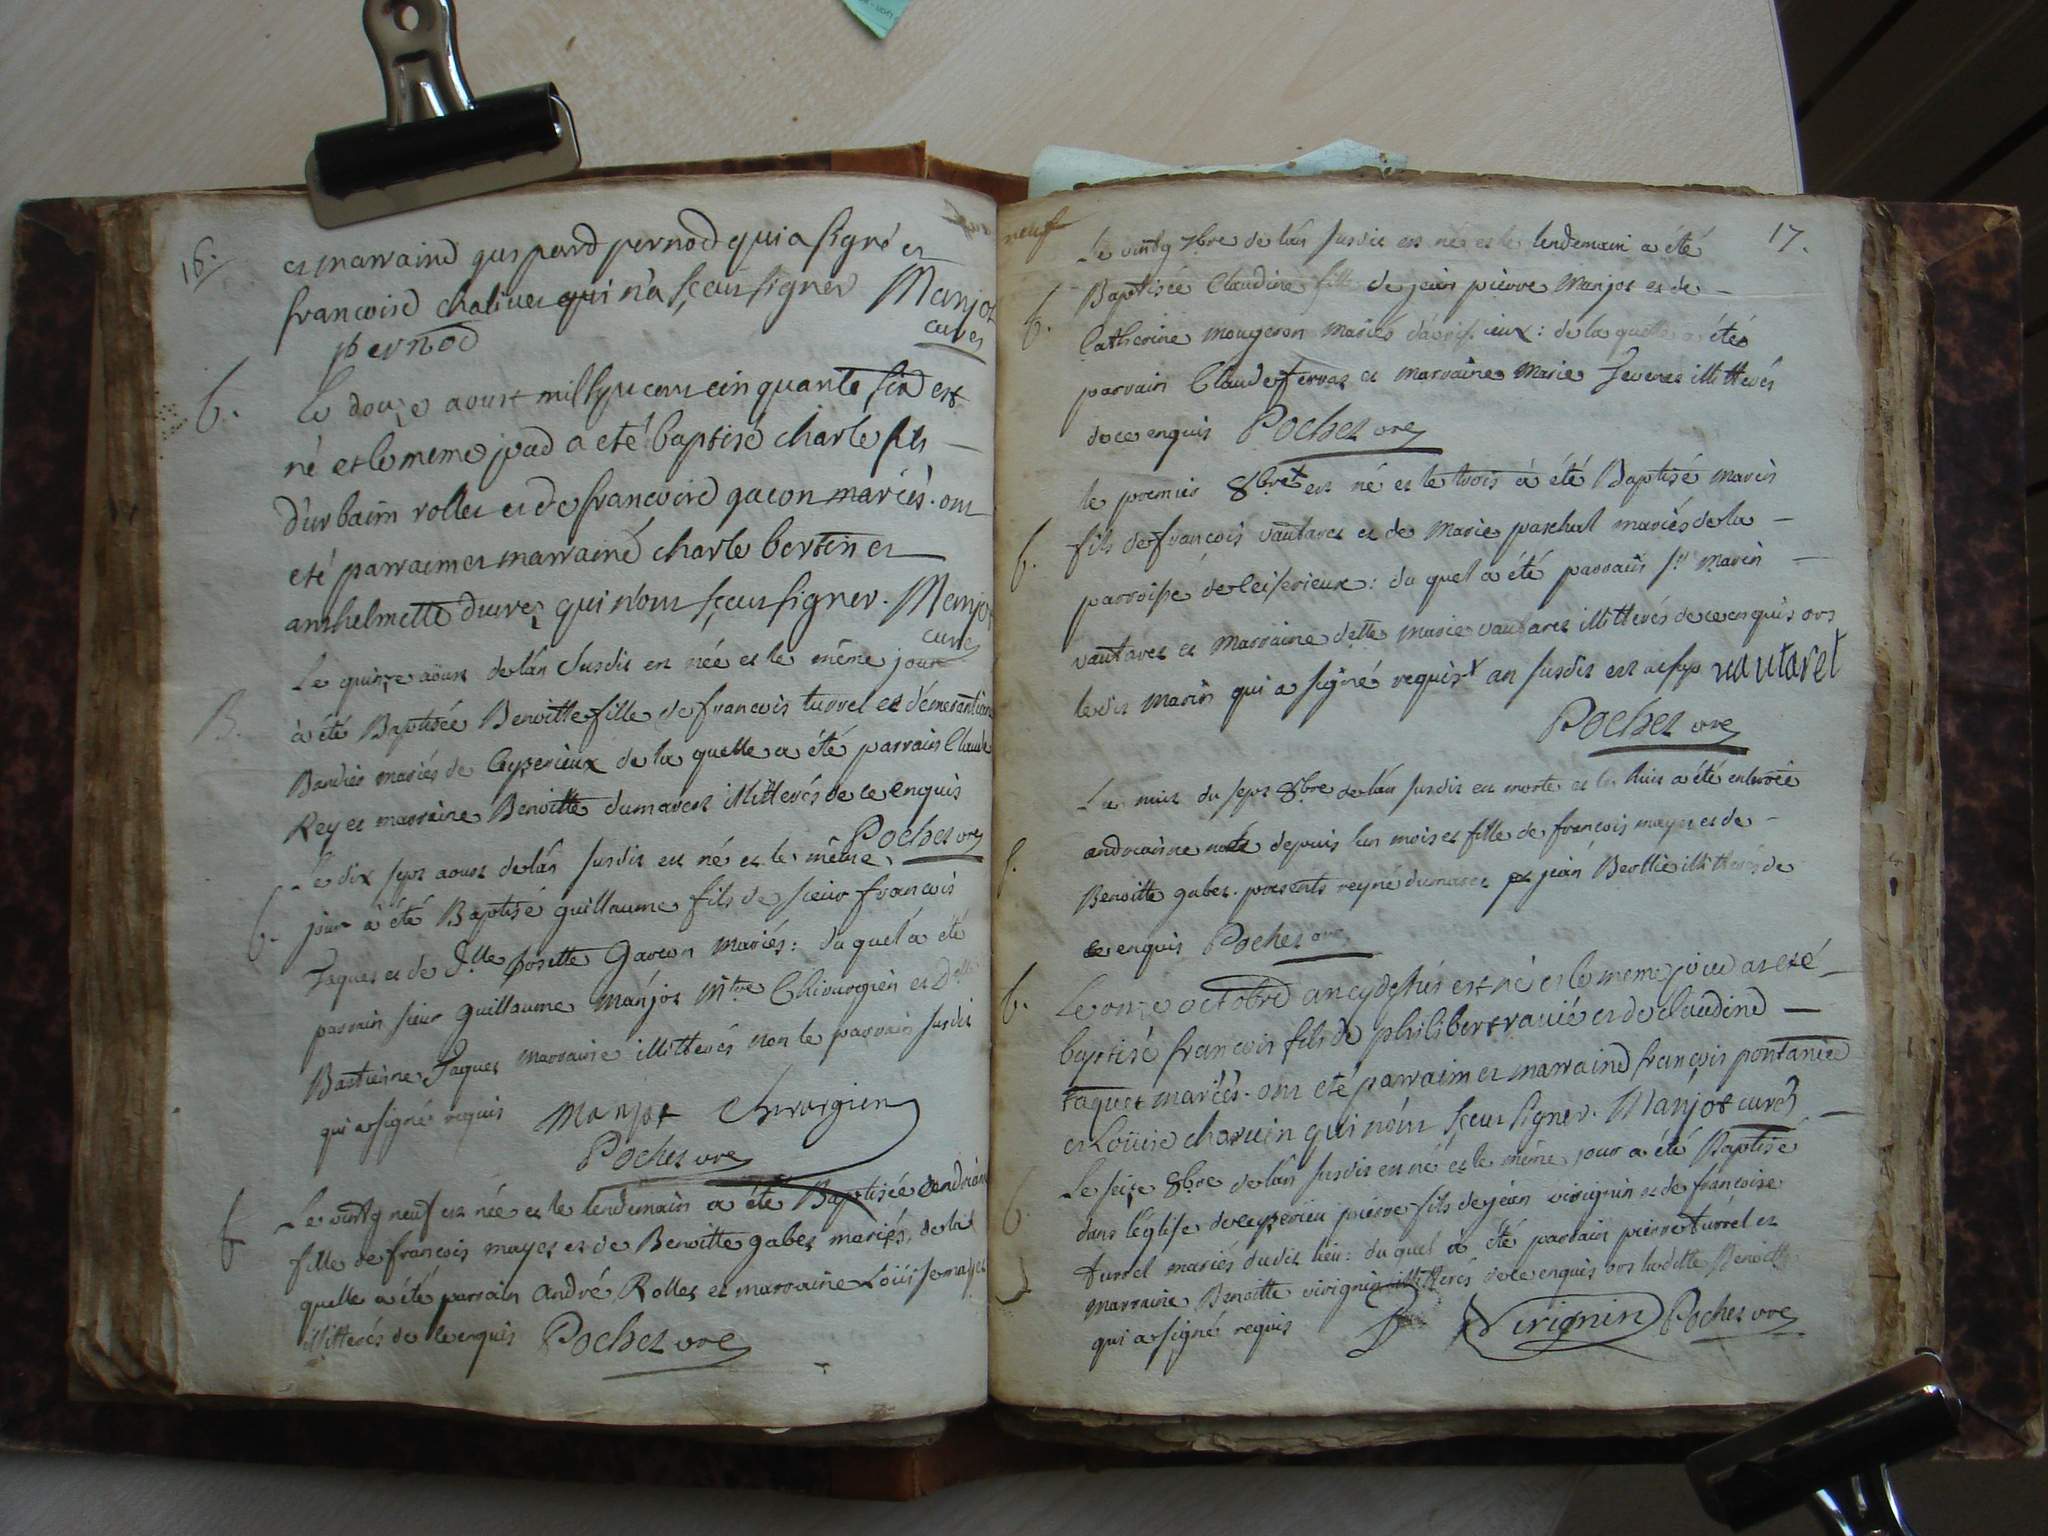 16.
et marraine gaspard pernod qui a signé et
francoise chalivet qui n'a sçeu signer Manjot
pernod curez
b. Le douze aoust mil sept cent cinquante six est
né et le meme jour a eté baptisé charle fils
d'urbaim rollet et de francoise gacon mariés. ont
eté parraim et marraine charle bertin et
anthelmette duvre, qui n'ont sçeu signer. Manjot
curez
Le quinze aoust de l'an susdit est née et le même jour
B. a été Baptisée Benoitte fille de francois turrel et d'émerantianne
Bandier mariés de Ceyzerieux de la quelle a été parrain Claude
Rey et marraine Benoitte dumarest illitterés de ce enquis
Pochet vre
Le dix sept aoust de l'an susdit est né et le même
b. jour a été Baptisé guillaume fils de sieur francois
Jaques et de Dlle josette Gavron mariés : du quel a été
parrain sieur guillaume Manjot Mtre Chirurgien et Dlle
Bastienne Jaques marraine illitterés non le parrain susdit
qui a signé requis Manjot Chirorgien
Pochet vre
b Le vintg neuf est née et le lendemain a été Baptisée andrianne
fille de francois mayet et de Benoitte gabet mariés, de la
quelle a été parrain andré Rollet et marraine Loüise mayet
illitterés de ce enquis Pochet vre
neuf 17.
Le vintg 7bre de l'an susdit est née et le lendemain a été
b. Baptisée Claudine fille de jean pierre Manjot et de
Catherine mougeron mariés : de la quelle a été
parrain Claude fervat et marraine Marie illitterés
de ce enquis Pochet vre
le premier 8bre est né et le trois a été Baptisé marin
b. fils de francois vautaret et de Marie paschal mariés de la
parroisse de Ceiserieux : du quel a été parrain sr Marin
vautaret et Marraine dette marie vautaret illitterés de ce enquis ors
le dit Marin qui a signé requis an susdit vautaret
Pochet vre
La nuit du sept 8bre de l'an susdit est morte et le huit a été enterrée
andrianne née depuis un mois et fille de francois mayet et de
Benoitte gabet. presents reyne dumarest et jean Berllie illitterés de
ce enquis Pochet vre
b. Le onze octobre an cy dessus est né et le meme jour a eté
baptisé francois fils de philibert ravié et de claudine
Jaquet mariés. ont eté parraim et marraine francois pontanier
et Loüise charvin qui n'ont sçeu signer. Manjot curez
Le seize 8bre de l'an susdit est né et le même jour a été Baptisé
b dans l'église de ceyzerieu pierre fils de jean virignin et de francoise
turrel mariés du dit lieu : du quel a été parrain pierre turrel et
marraine Benoitte virignin illitterés de ce enquis ors la dette Benoitte
qui a signé requis Virignin Pochet vre